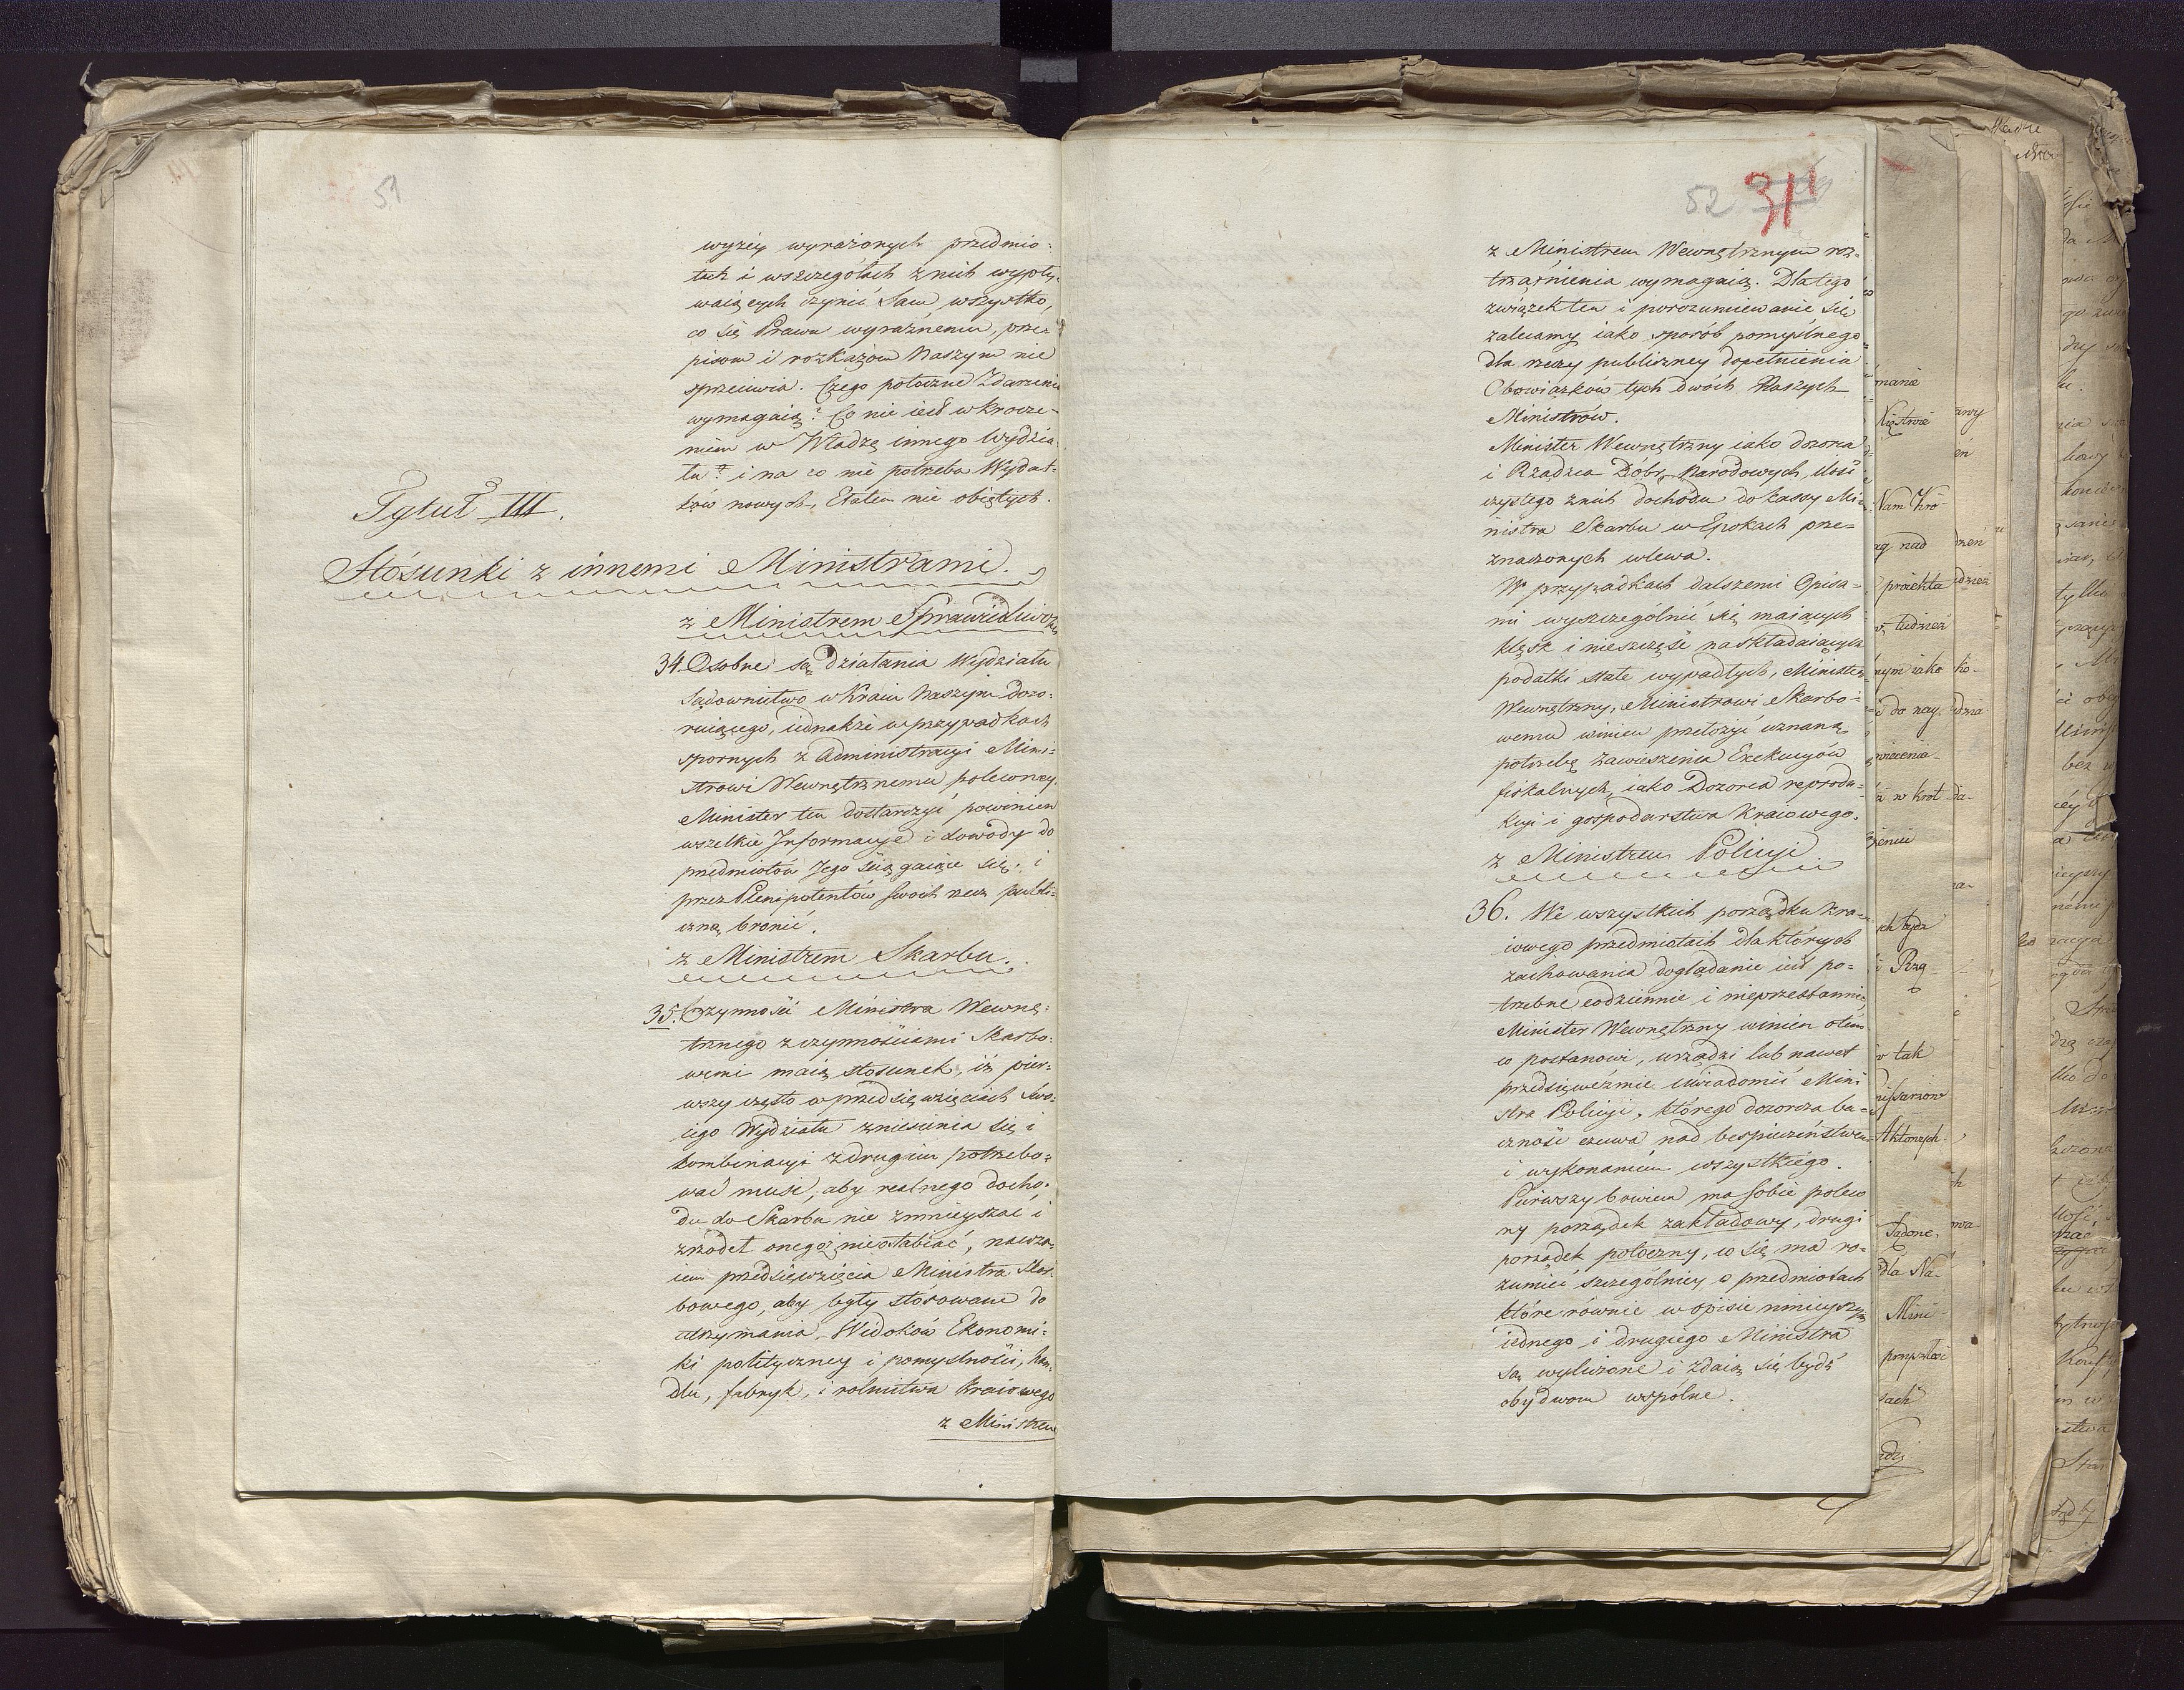 51
wyżéy wyrażonych przedmio-
tach i wszczegółach z nich wypły-
waiących czynić Sam, wszystko,
co się Prawu wyraźnemu, prze-
pisom i rozkazom Naszym nie
sprzeciwia. Czego potoczne Zdarzenia
wymagaią? Co nie iest wkrocze-
niem w Władzę innego Wydzia-
łu? i na co nie potrzeba Wydat-
ków nowych, Etatem nie obiętych.
Tytuł III.
Stósunki z innemi Ministrami.
z Ministrem Sprawiedliwości
34. Osobne są działania Wydziału
Sądownictwo w Kraiu Naszym dozo-
ruiącego, iednakże w przypadkach
spornych z Administracyi Mini-
strowi Wewnętrznemu poleconey.
Minister ten dostarczyć powinien
wszelkie Informacye i dowody do
przedmiotów Jego ściągaiące się, i
przez Plenipotentów swoich rzecz publi-
czną bronić.
z Ministrem Skarbu.
35. Czynność Ministra Wewnę-
trznego z czynnościami Skarbo-
wemi maią stosunek, iż pier-
wszy często w przedsięwzięciach swo-
iego Wydziału zniesienia się i
kombinacyi z drugim potrzebo-
wać musi, aby realnego docho-
du do Skarbu nie zmnieyszać i
źrzódeł onegoż nie osłabiać, nawza-
iem przedsięwzięcia Ministra Skar-
bowego, aby były stósowane do
utrzymania Widoków Ekonomi-
ki polityczney i pomyślności, han-
dlu, fabryk, i rolnictwa Kraiowego
z Ministrem
52 311
z Ministrem Wewnętrznym roz-
trząśnienia wymagaią. Dlatego
związek ten i porozumiewanie się
zalecamy iako sposób pomyślnego
dla rzeczy publiczney dopełnienia
Obowiązków tych dwóch Naszych
Ministrów.
Minister Wewnętrzny iako dozorca
i Rządzca Dóbr Narodowych ilość
czystego z nich dochodu do kassy Mi-
nistra Skarbu w Epokach prze-
znaczonych wlewa.
W przypadkach dalszemi Opisa-
mi wyszczególnić się maiących
klęsk i nieszczęść na składaiących
podatki stałe wypadłych, Minister
Wewnętrzny, Ministrowi Skarbo-
wemu winien przełożyć uznaną
potrzebę zawieszenia Exekucyów
fiskalnych, iako Dozorca reprodu-
kcyi i gospodarstwa Kraiowego.
z Ministrem Policyi
36. We wszystkich porządku kra-
iowego przedmiotach dla których
zachowania doglądanie iest po-
trzebne codziennie i nieprzestannie,
Minister Wewnętrzny winien o tém
co postanowi, urządzi lub nawet
przedsięweźmie uwiadomić Mini
stra Policyi, którego dozorcza ba-
czność czuwa nad bespieczeństwem
i wykonaniem wszystkiego.
Pierwszy bowiem ma sobie poleco
ny porządek zakładowy, drugi
porządek potoczny, co się ma ro-
zumieć szczególniey o przedmiotach
które równie w opisie ninieyszym
iednego i drugiego Ministra
są wyliczone i zdaią się bydź
obydwom wspólne.